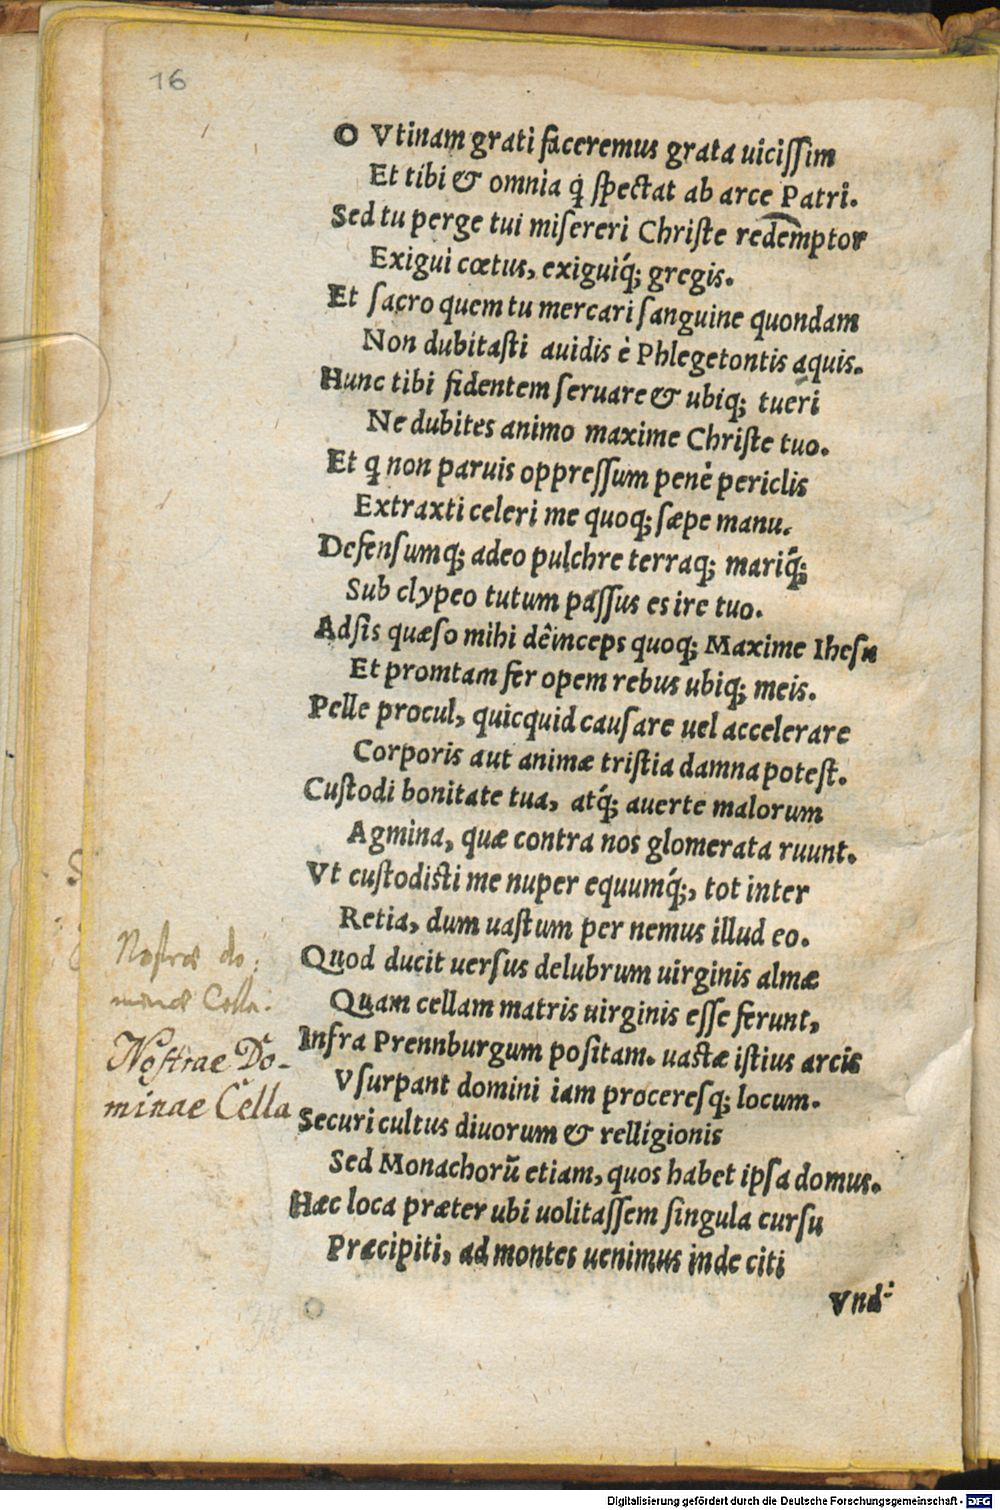 16
O Vtinam grati faceremus grata uiciſſim
Et tibi & omnia q̃ ſpectat ab arce Patri.
Sed tu perge tui miſereri Chriſte redemptor
Exigui cœtus, exiguiq́; gregis.
Et ſacro quem tu mercari ſanguine quondam
Non dubitaſti auidis è Phlegetontis aquis.
Hunc tibi fidentem ſeruare & ubiq; tueri
Ne dubites animo maxime Chriſte tuo.
Et q non paruis oppreſſum penè periclis
Extraxti celeri me quoq; ſæpe manu.
Defenſumq; adeo pulchre terraq; mariq́;
Sub clypeo tutum paſſus es ire tuo.
Adſis quæſo mihi dêinceps quoq; Maxime Iheſu
Et promtam fer opem rebus ubiq; meis.
Pelle procul, quicquid cauſare uel accelerare
Corporis aut animæ triſtia damna poteſt.
Cuſtodi bonitate tua, atq́; auerte malorum
Agmina, quæ contra nos glomerata ruunt.
Vt cuſtodiſti me nuper equumq́;, tot inter
Retia, dum uaſtum per nemus illud eo.
Quod ducit uerſus delubrum uirginis almæ
Quam cellam matris uirginis eſſe ferunt,
Infra Prennburgum poſitam. uaſtæ iſtius arcis
Vſurpant domini iam proceresq; locum.
Securi cultus diuorum & relligionis
Sed Monachorũ etiam, quos habet ipſa domus.
Hæc loca præter ubi uolitaſſem ſingula curſu
Præcipiti, ad montes uenimus inde citi
Vnd:
Nostrae do:
minae Cella.
Nostrae Do-
minae Cella
Digitalisierung gefördert durch die Deutsche Forschungsgemeinschaft - DFG